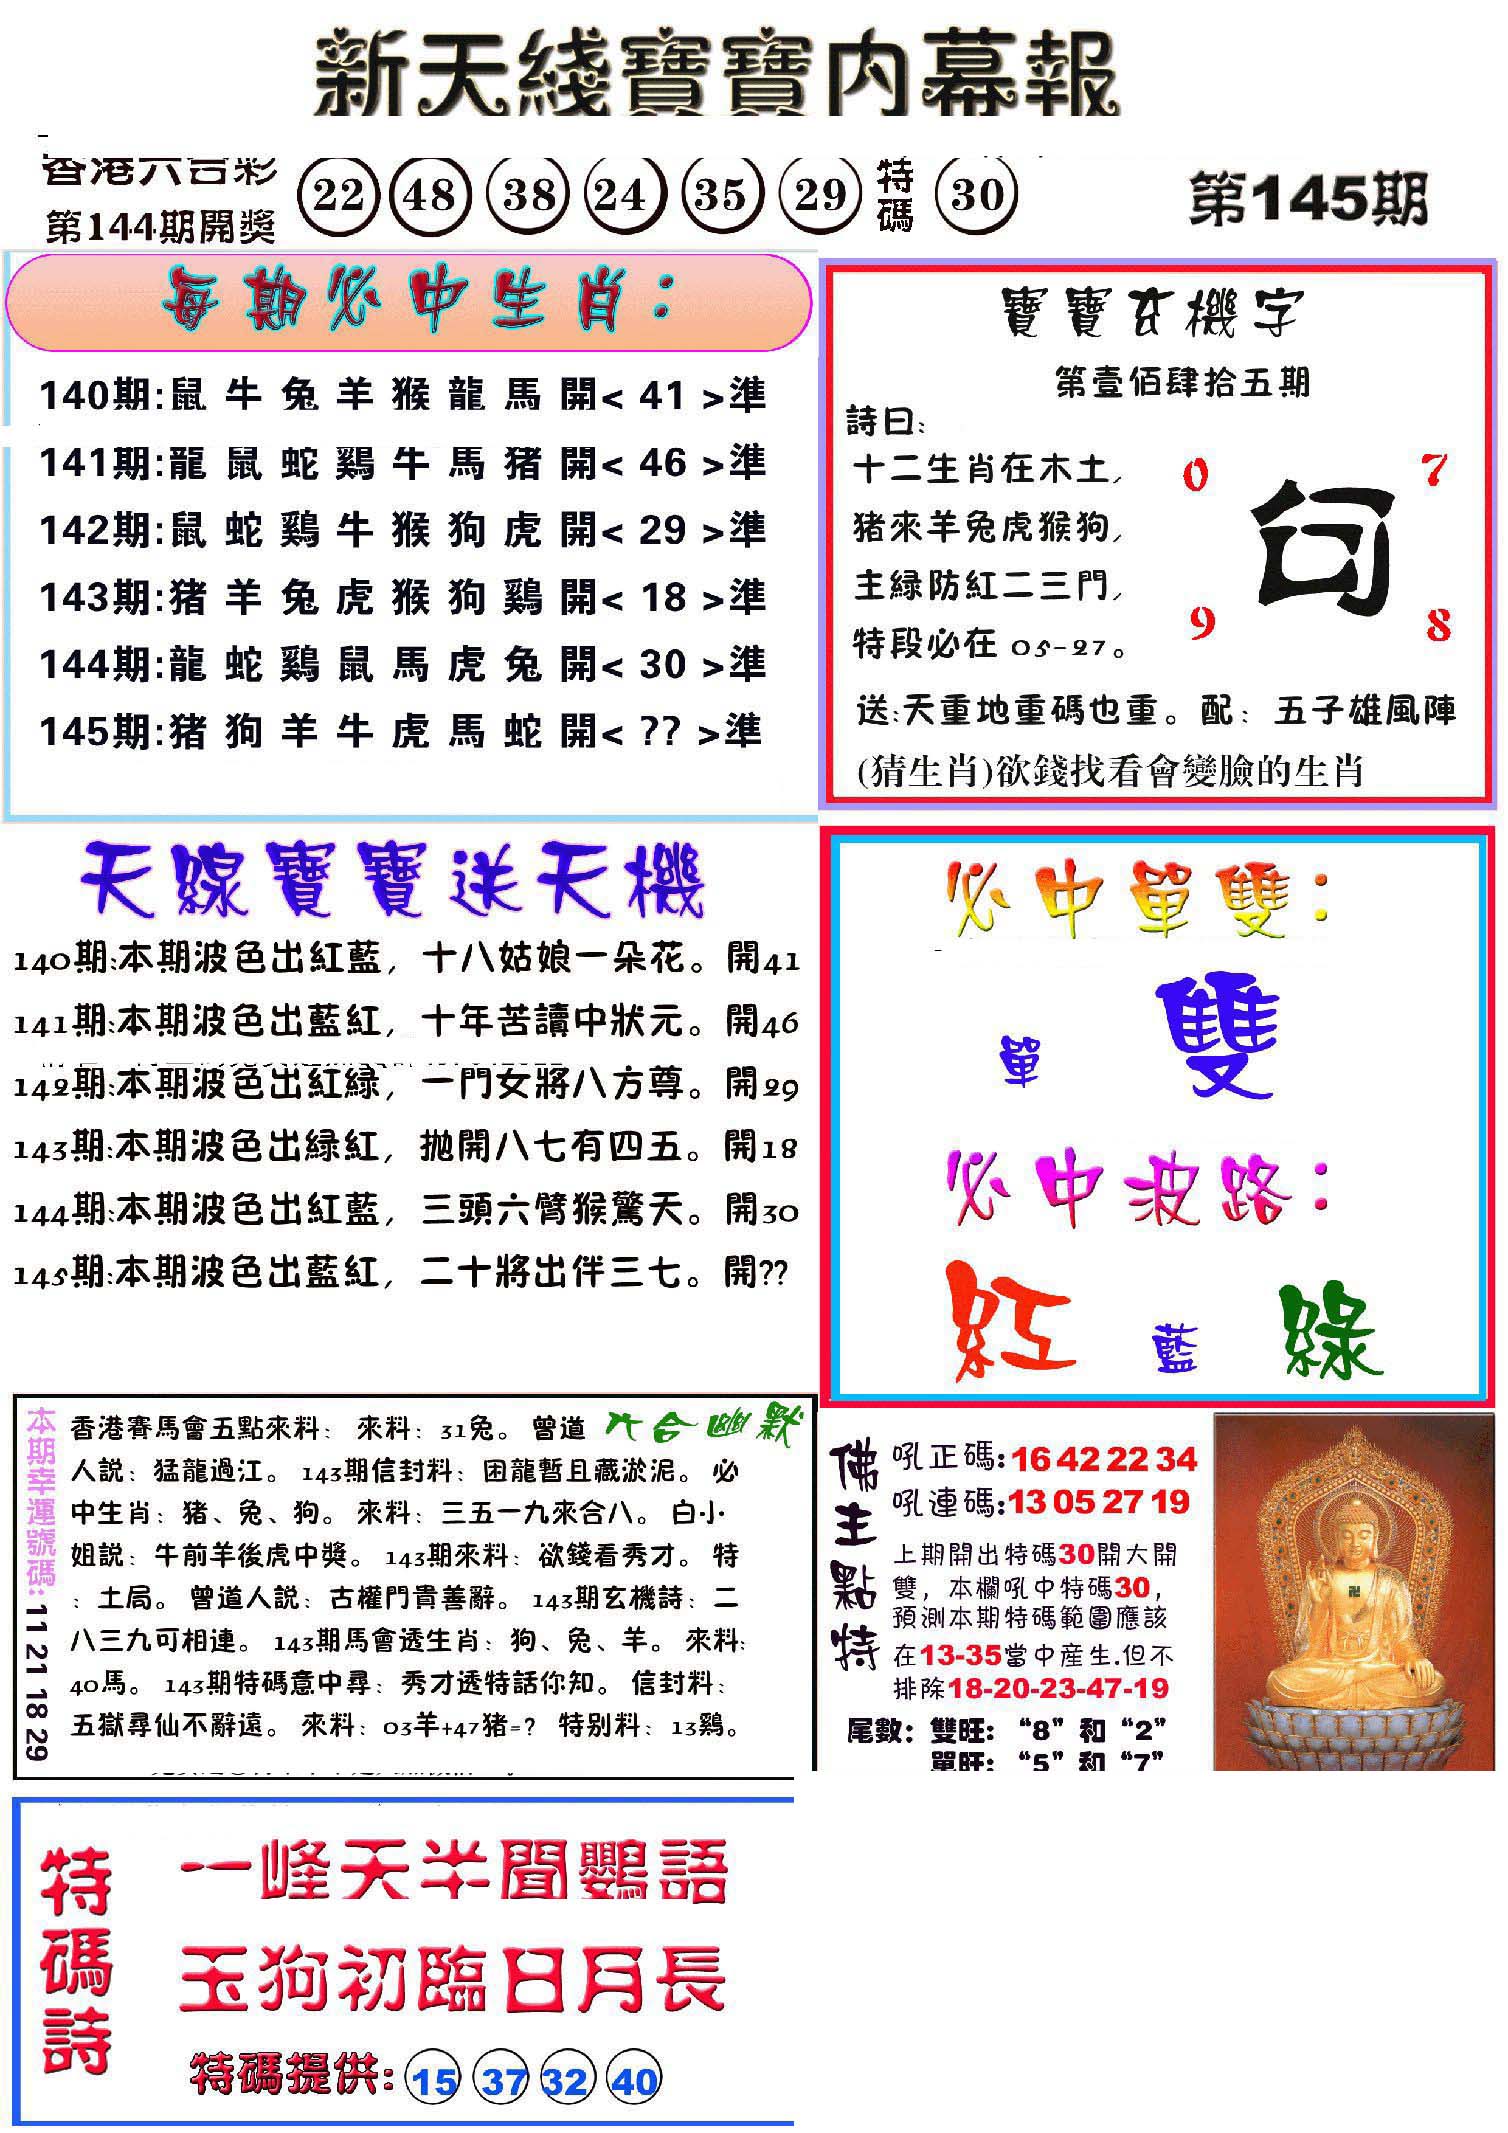 新天綫寶寶内幕報
香港六合彩
第144期開獎
22 48 38 24 35 29 特碼 30
第145期
每期必中生肖：
140期:鼠 牛 兔 羊 猴 龍 馬 開< 41 >準
141期:龍 鼠 蛇 鷄 牛 馬 猪 開< 46 >準
142期:鼠 蛇 鷄 牛 猴 狗 虎 開< 29 >準
143期:猪 羊 兔 虎 猴 狗 鷄 開< 18 >準
144期:龍 蛇 鷄 鼠 馬 虎 兔 開< 30 >準
145期:猪 狗 羊 牛 虎 馬 蛇 開< ?? >準
寶寶玄機字
第壹佰肆拾五期
詩曰:
十二生肖在木土,
猪來羊兔虎猴狗,
主緑防紅二三門,
特段必在 05-27。
0 7
9 8
送:天重地重碼也重。配: 五子雄風陣
(猜生肖)欲錢找看會變臉的生肖
天線寶寶送天機
140期:本期波色出紅藍, 十八姑娘一朵花。開41
141期:本期波色出藍紅, 十年苦讀中狀元。開46
142期:本期波色出紅緑, 一門女將八方尊。開29
143期:本期波色出緑紅, 拋開八七有四五。開18
144期:本期波色出紅藍, 三頭六臂猴驚天。開30
145期:本期波色出藍紅, 二十將出伴三七。開??
必中單雙：
單 雙
必中波路：
紅 藍 綠
本期幸運號碼: 11 21 18 29
六合幽默
香港賽馬會五點來料: 來料: 31兔。 曾道
人説: 猛龍過江。 143期信封料: 困龍暫且藏淤泥。 必
中生肖: 猪、兔、狗。 來料: 三五一九來合八。 白小
姐説: 牛前羊後虎中獎。 143期來料: 欲錢看秀才。 特
: 土局。 曾道人説: 古權門貴善辭。 143期玄機詩: 二
八三九可相連。 143期馬會透生肖: 狗、兔、羊。 來料:
40馬。 143期特碼意中尋: 秀才透特話你知。 信封料:
五獄尋仙不辭遠。 來料: 03羊+47猪=? 特别料: 13鷄。
佛主點特
吼正碼:16 42 22 34
吼連碼:13 05 27 19
上期開出特碼30開大開
雙, 本欄吼中特碼30,
預測本期特碼範圍應該
在13-35當中産生.但不
排除18-20-23-47-19
尾數: 雙旺: “8” 和 “2”
單旺: “5” 和 “7”
特碼詩
一峰天半聞鸚語
玉狗初臨日月長
特碼提供: 15 37 32 40